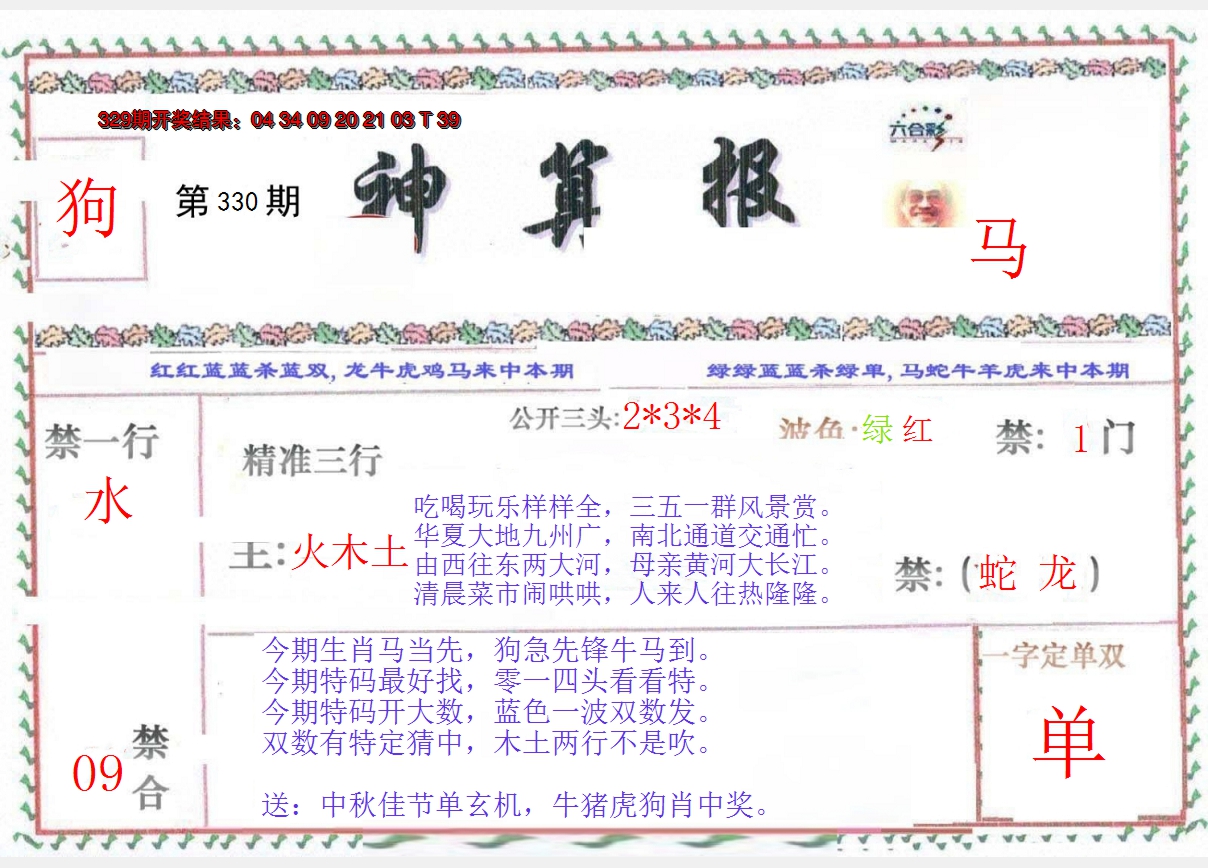 329期开奖结果：04 34 09 20 21 03 T 39
六合彩
狗
第 330 期
神 算 报
马
红红蓝蓝杀蓝双,龙牛虎鸡马来中本期
绿绿蓝蓝杀绿单,马蛇牛羊虎来中本期
禁一行
水
公开三头:2*3*4
波色:绿 红
禁: 1 门
精准三行
主:火木土
吃喝玩乐样样全，三五一群风景赏。
华夏大地九州广，南北通道交通忙。
由西往东两大河，母亲黄河大长江。
清晨菜市闹哄哄，人来人往热隆隆。
禁:(蛇 龙)
今期生肖马当先，狗急先锋牛马到。
今期特码最好找，零一四头看看特。
今期特码开大数，蓝色一波双数发。
双数有特定猜中，木土两行不是吹。
送：中秋佳节单玄机，牛猪虎狗肖中奖。
一字定单双
单
09
禁合